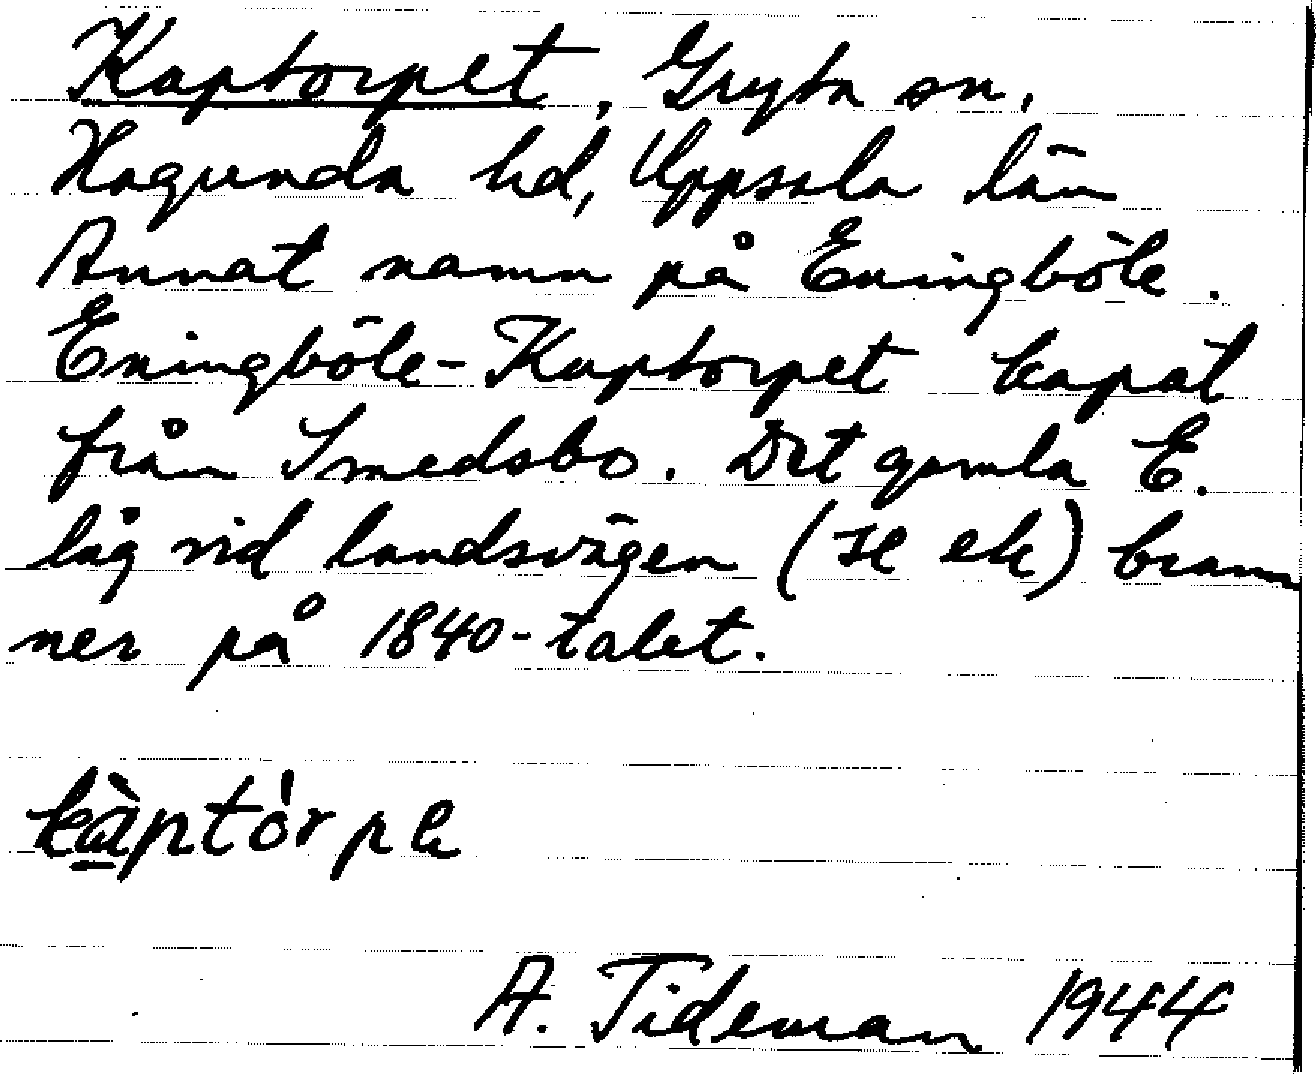 Kaptorpet, Gryta sn,
Hagunda hd, Uppsala län
Annat namn på Eningböle.
Eningböle-Kaptorpet kapat
från Smedsbo. Det gamla E.
låg vid landsvägen (se ek) bran
ner på 1840-talet.
kàptórpe
A. Tideman 1944